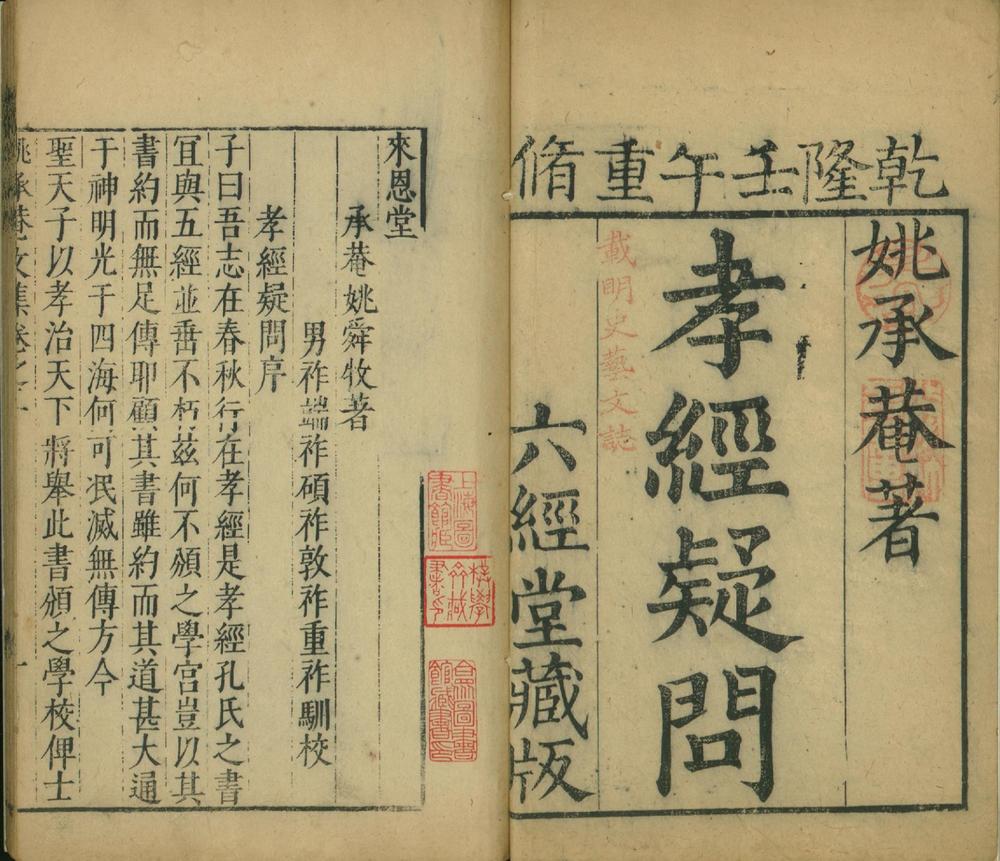 乾隆壬午重脩
姚承菴著
孝經疑問
載明史藝文誌
六經堂藏版
來恩堂
承菴姚舜牧著
男祚端祚碩祚敦祚重祚馴校
孝經疑問序
子曰吾志在春秋行在孝經是孝經孔氏之書
宜與五經並垂不朽茲何不頒之學宮豈以其
書約而無足傳耶顧其書雖約而其道甚大通
于神明光于四海何可泯滅無傳方今
聖天子以孝治天下將舉此書頒之學校俾士
姚承菴文集卷之一
上海圖書館藏書